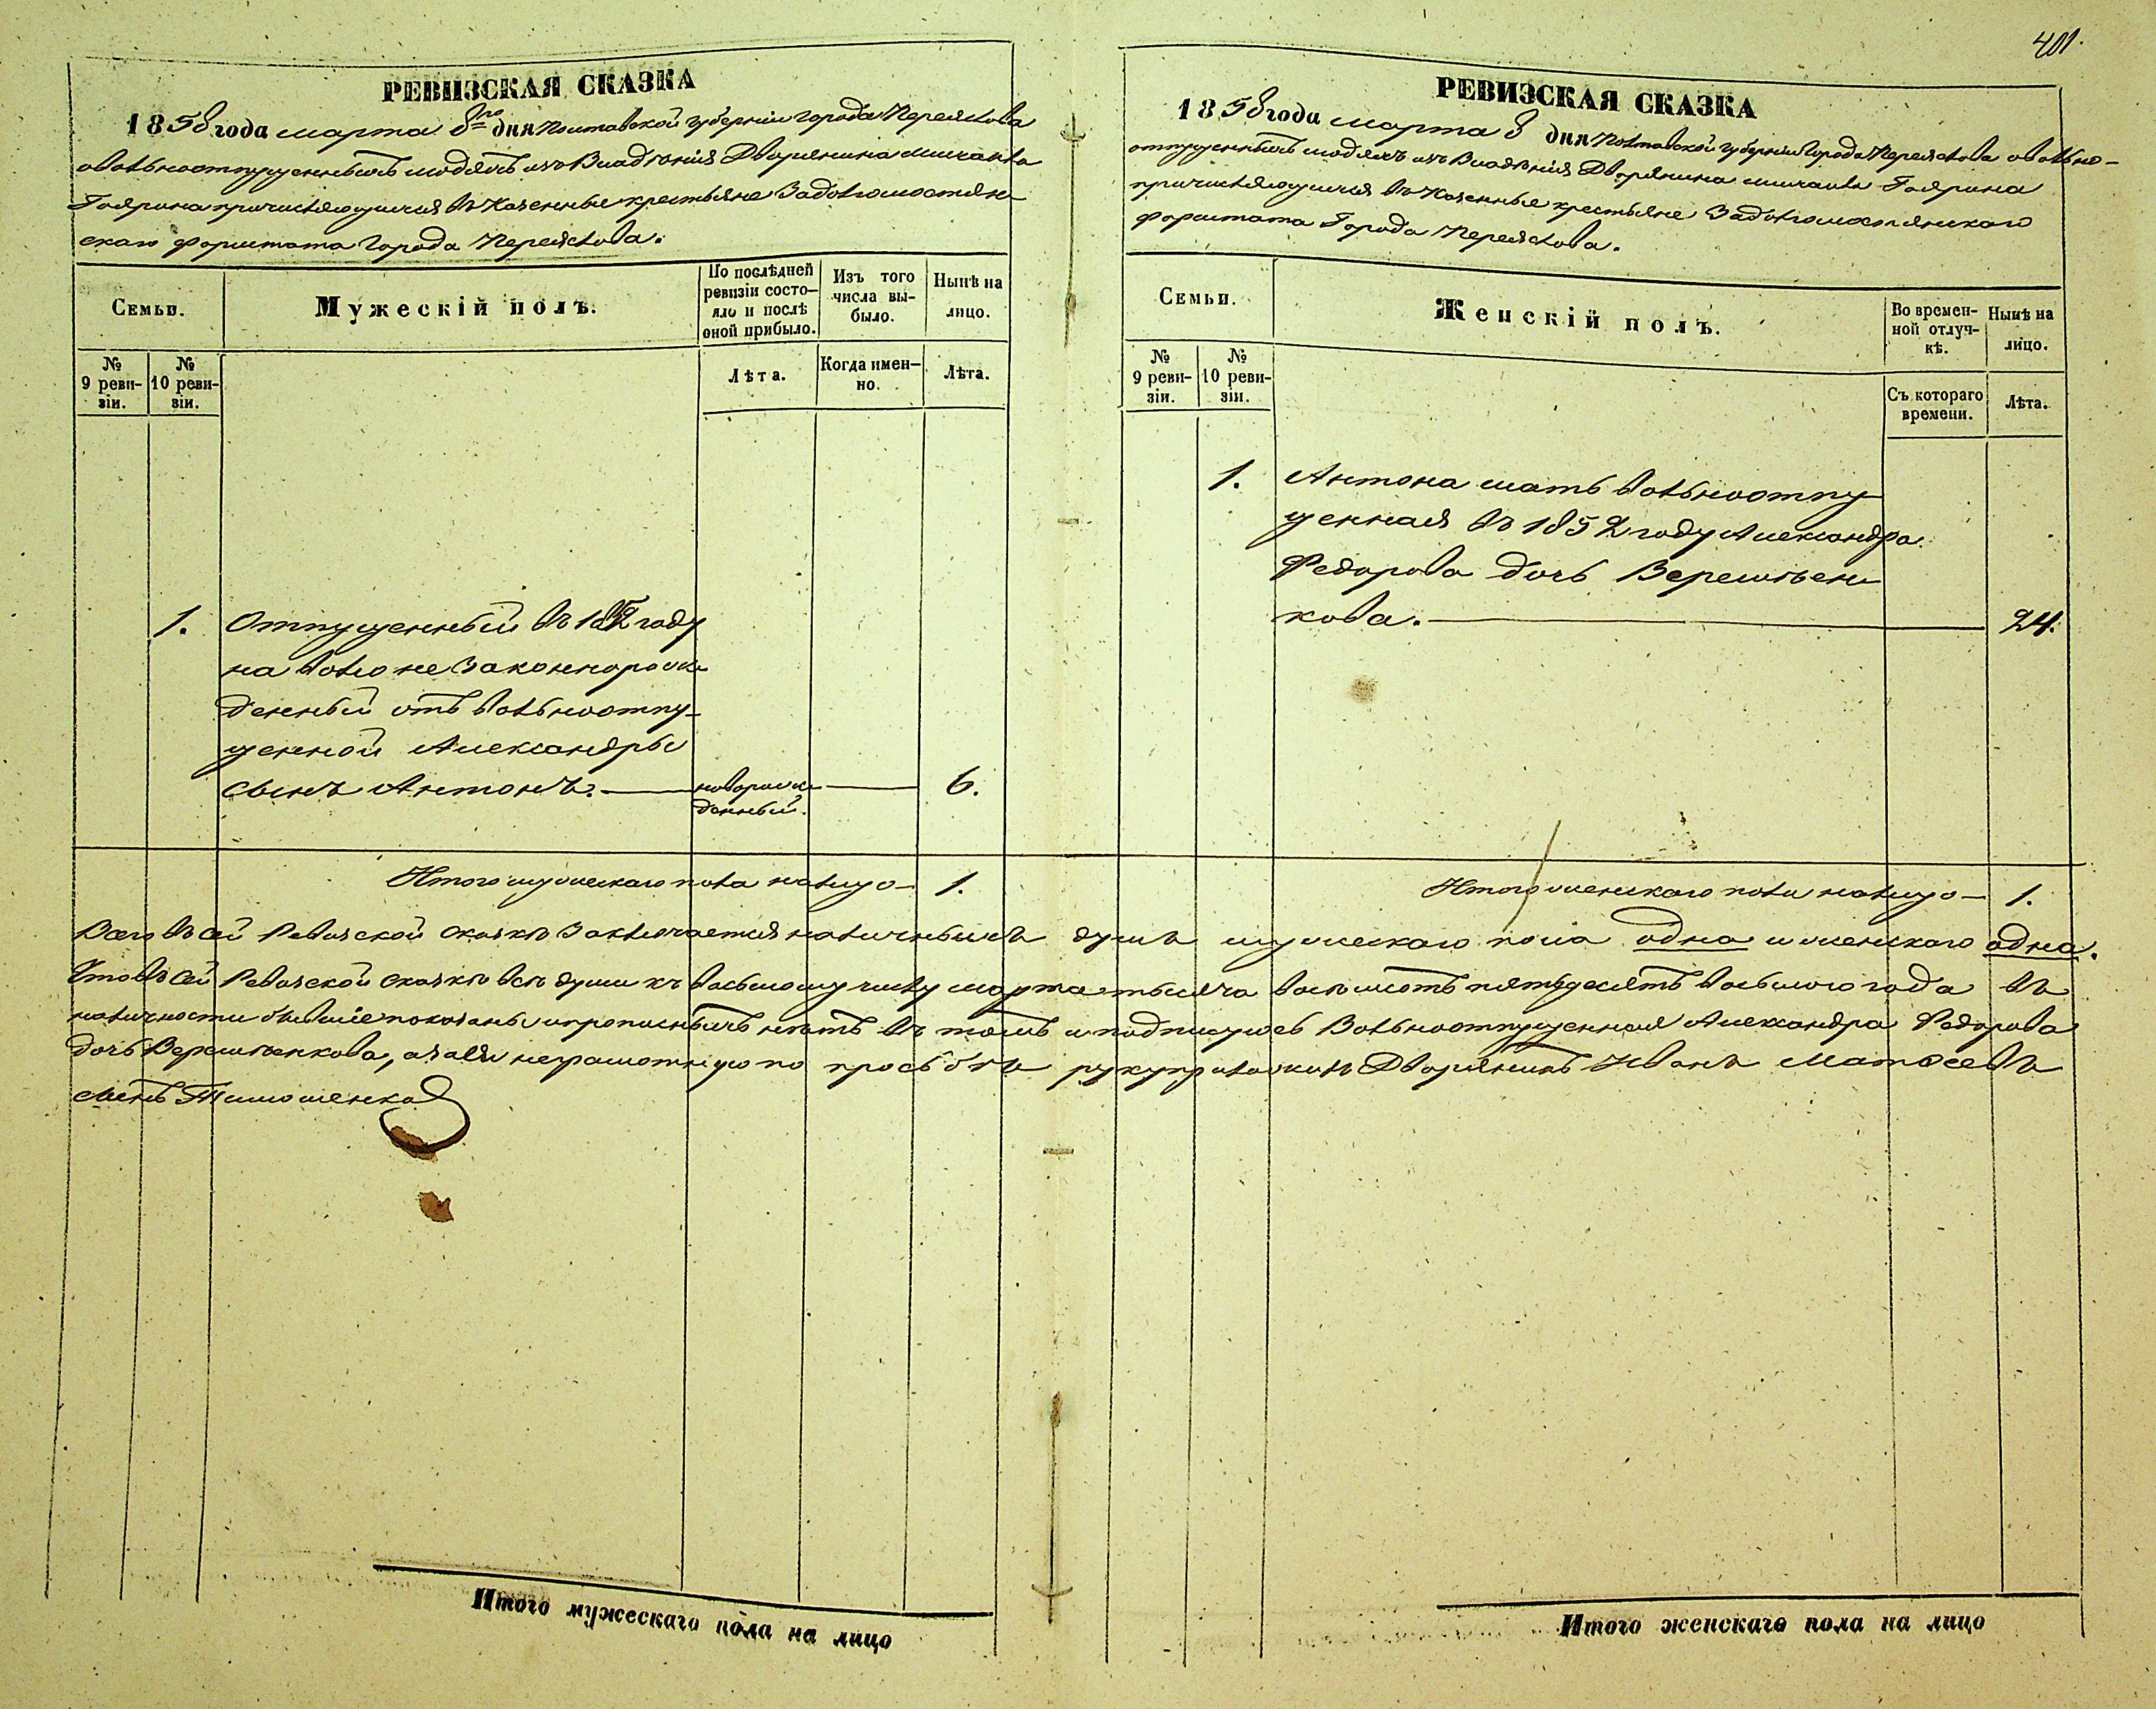 401.
РЕВИЗСКАЯ СКАЗКА
1858 года марта 8го дня Полтавской губерніи города Переяслова
о вольноотпущенныхъ людяхъ изъ Владѣнія Дворянина Михаила
Гоярина причисляющихся въ Казенные крестьяне Задолгомостян-
скаго форштата Города Переяслова.
Семьи.
Мужескій полъ.
По послѣдней ревизіи состо-
яло и послѣ
оной прибыло.
Изъ того
числа вы-
было.
Нынѣ на
лицо.
№
9 реви-
зіи.
№
10 реви-
зіи.
Лѣта.
Когда имен-
но.
Лѣта.
1. Отпущенный въ 1852 году
на волю не Законнорож-
денный отъ вольноотпу-
щенной Александры
сынъ Антонъ. новорож-
денный. 6.
Итого мужескаго пола налицо 1.
РЕВИЗСКАЯ СКАЗКА
1858 года марта 8 дня Полтавской губерніи Города Переяслова о вольно-
отпущенныхъ людяхъ изъ Владѣнія Дворянина Михаила Гоярина
причисляющихся въ Казенные крестьяне Задолгомостянскаго
форштата Города Переяслова.
Семьи.
Женскій полъ.
Во времен-
ной отлуч-
кѣ.
Нынѣ на
лицо.
№
9 реви-
зіи.
№
10 реви-
зіи.
Съ котораго
времени.
Лѣта.
1. Антона мать вольноотпу-
щенная въ 1852 году Александра
Федорова дочь Верешъен-
кова. 24.
Итого женскаго пола налицо 1.
Всего въ сей Ревизской сказкѣ Заключается наличныхъ душъ мужескаго пола одна и женскаго одна.
Что въ сей Ревизской сказкѣ всѣ души къ восьмому числу марта тысяча восемьсотъ пятьдесятъ восьмого года въ
наличности бывшіе показаны и прописныхъ нѣтъ въ томъ и подписуюсь Вольноотпущенная Александра Федорова
дочь Верешъенкова, а за ея неграмотную по просьбѣ руку приложилъ Дворянинъ Иванъ Матвѣевъ
сынъ Тимошенко
Итого мужескаго пола на лицо
Итого женскаго пола на лицо